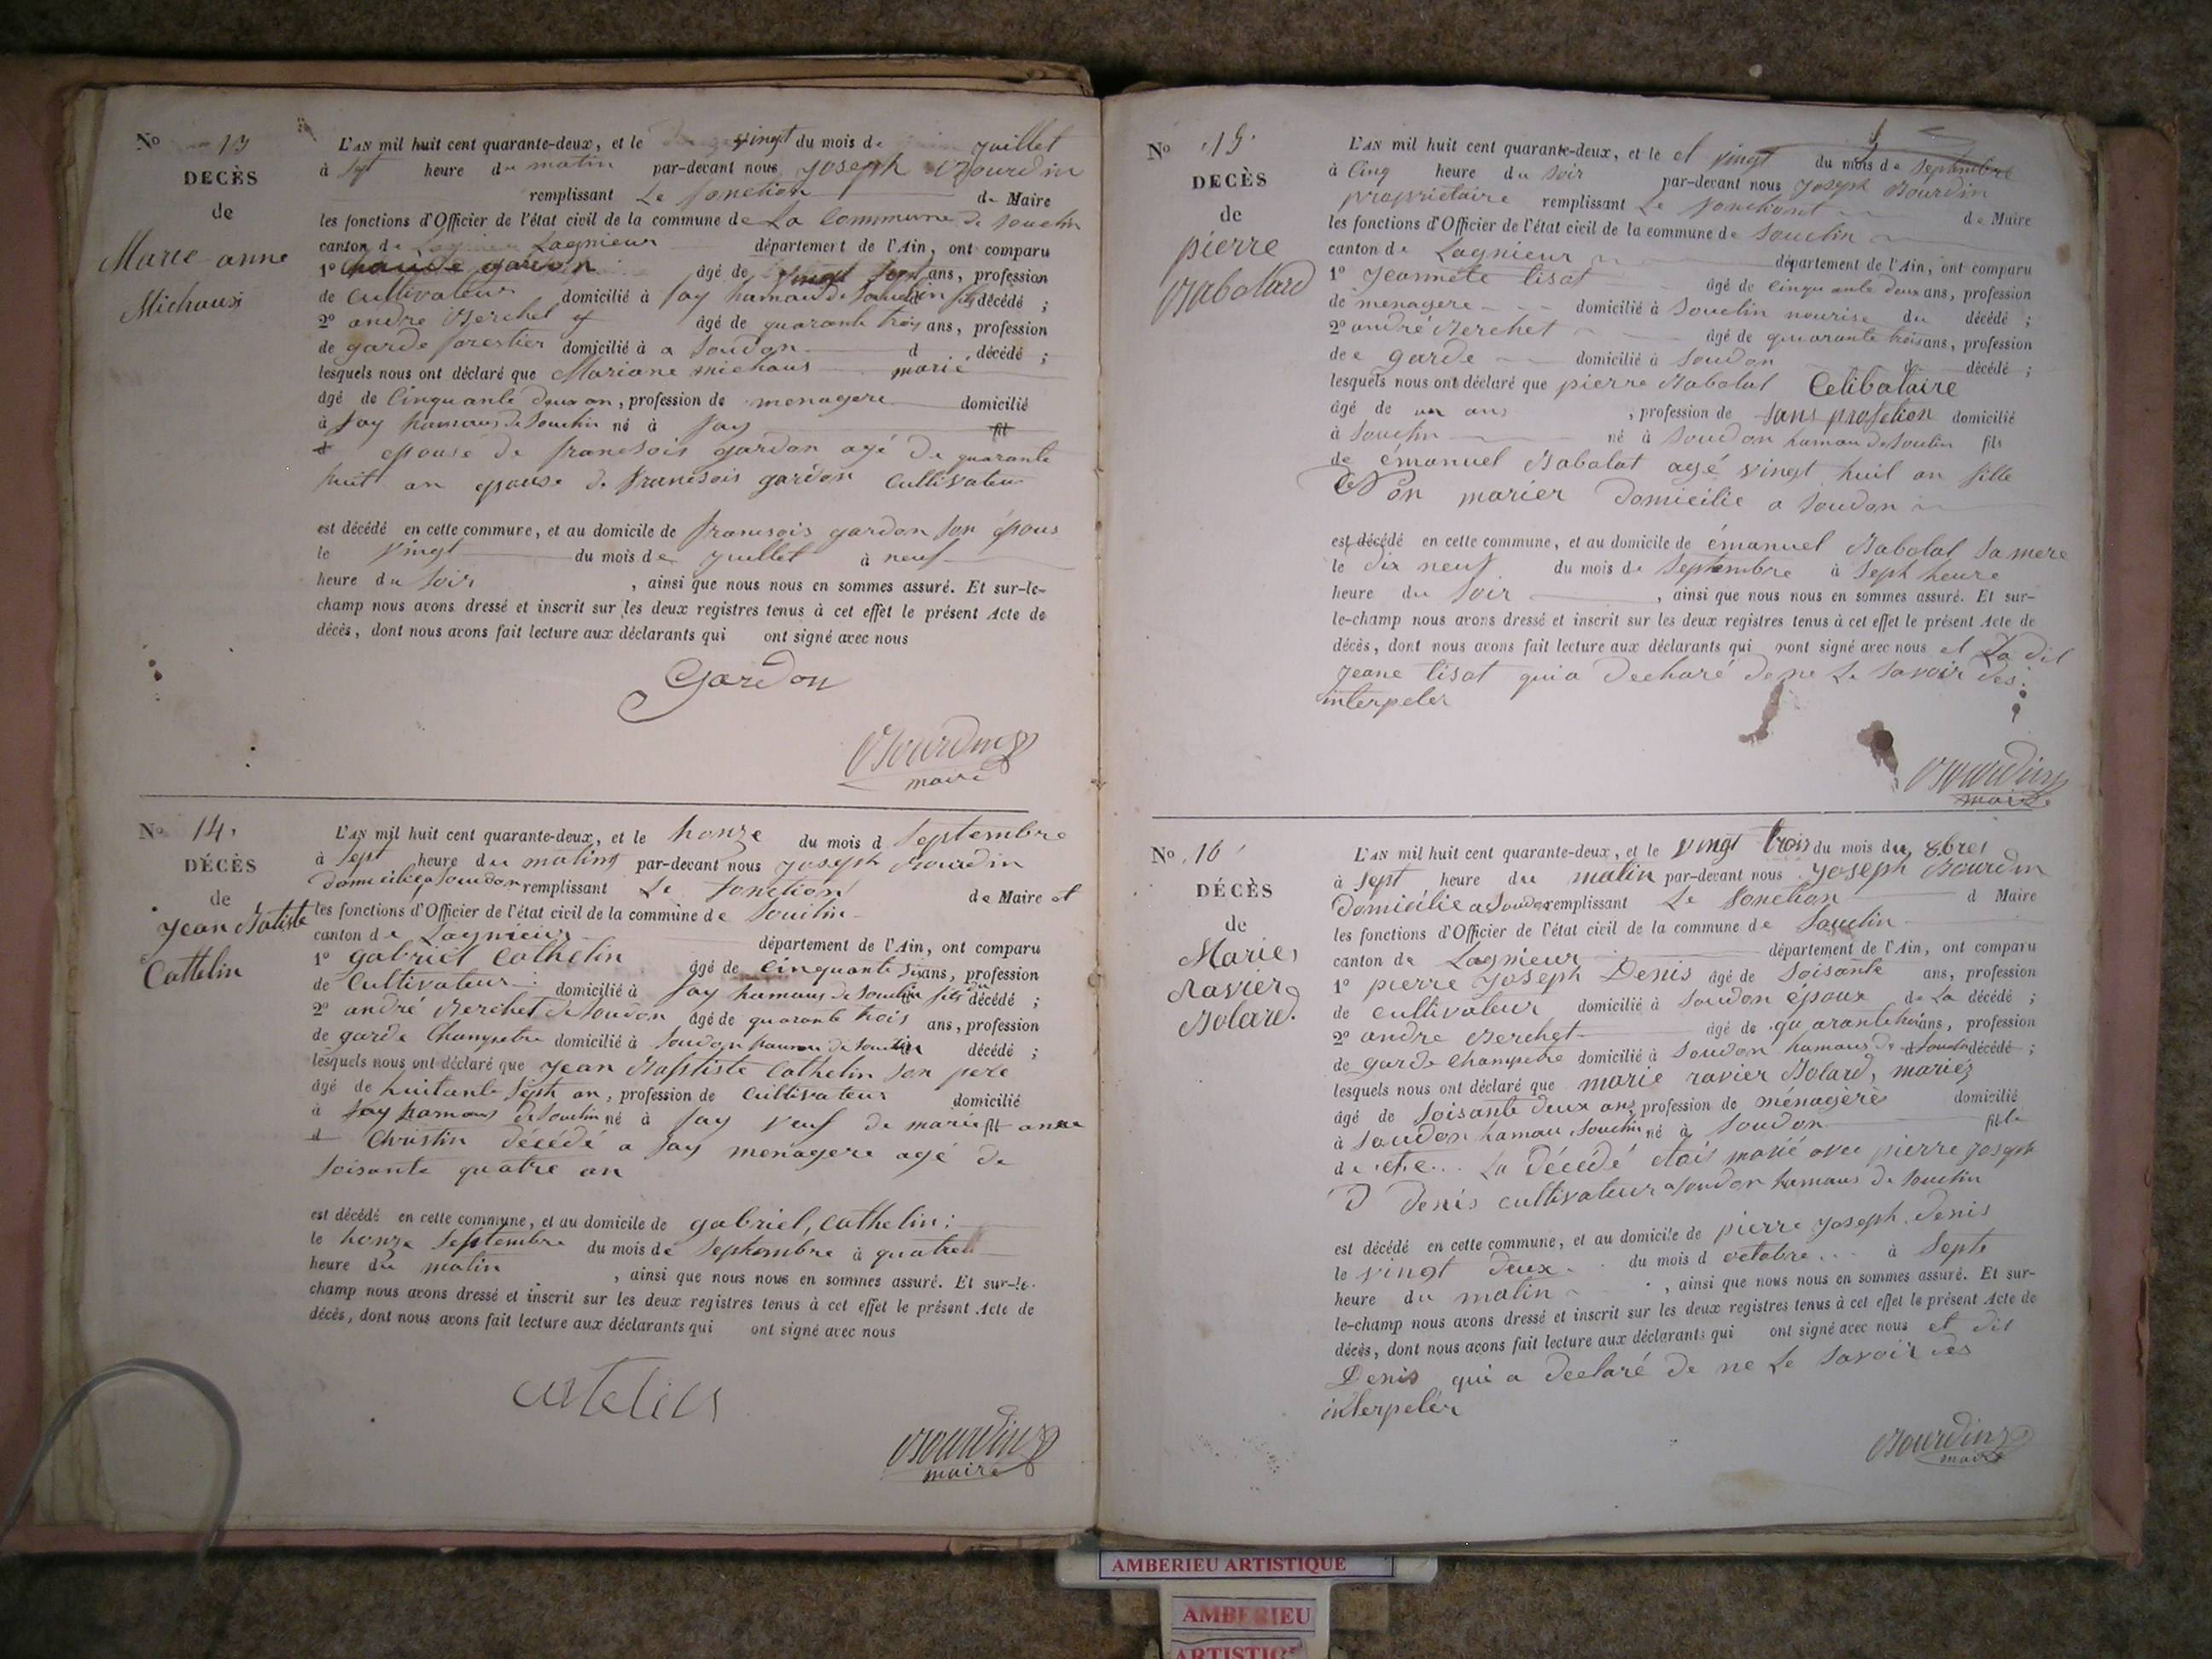 No 13
DECÈS
de
Marie anne
Michaux
L'AN mil huit cent quarante-deux, et le vingt du mois de juillet
à sept heure du matin par-devant nous joseph Bourdin
remplissant Le fonction de Maire
les fonctions d'Officier de l'état civil de la commune de La Commune de Souclin
canton de Lagnieur département de l'Ain, ont comparu
1o gardon âgé de vingt sept ans, profession
de Cultivateur domicilié à fay hamau de Souclin fils décédé ;
2o andre Berchet âgé de quarante trois ans, profession
de garde forestier domicilié à a Soudon d décédé ;
lesquels nous ont déclaré que Mariane michaus marié
âgé de Cinquante deux an, profession de menagere domicilié
à fay hamaus de Souclin né à fay fil
d epouse de francsois gardon agé de quarante
huit an epouse de francsois gardon Cultivateur
est décédé en cette commune, et au domicile de francsois gardon son épous
le vingt du mois de juillet à neuf
heure du soir , ainsi que nous nous en sommes assuré. Et sur-le-
champ nous avons dressé et inscrit sur les deux registres tenus à cet effet le présent Acte de
décès, dont nous avons fait lecture aux déclarants qui ont signé avec nous
Gardon
Bourdin
maire
No 14.
DÉCÈS
de
Jean Batiste
Cattelin
L'AN mil huit cent quarante-deux, et le honze du mois d Septembre
à sept heure du mating par-devant nous joseph Bourdin
Domicilié a Soudon remplissant Le fonction de Maire et
les fonctions d'Officier de l'état civil de la commune de Souclin
canton de Lagnieur département de l'Ain, ont comparu
1o gabriel Cathelin âgé de Cinquante six ans, profession
de Cultivateur domicilié à fay hamaus de Souclin fils du décédé ;
2o andré Berchet de Soudon âgé de quarante trois ans, profession
de garde Champetre domicilié à Soudon hamau de Souclin décédé ;
lesquels nous ont déclaré que Jean Baptiste Cathelin son pere
âgé de huitante sept an, profession de Cultivateur domicilié
à fay hamaus de Souclin né à fay veuf de marie fil anne
d Christin décédé a fay menagere agé de
soisante quatre an
est décédé en cette commune, et au domicile de gabriel, Cathelin :
le honze Septembre du mois de Septembre à quatre
heure du matin , ainsi que nous nous en sommes assuré. Et sur-le-
champ nous avons dressé et inscrit sur les deux registres tenus à cet effet le présent Acte de
décès, dont nous avons fait lecture aux déclarants qui ont signé avec nous
Bourdin
maire
No 15.
DECÈS
de
pierre
Babolard
L'AN mil huit cent quarante-deux, et le et vingt du mois de Septembre
à Cinq heure du soir par-devant nous Joseph Bourdin
propriétaire remplissant Le fonctiont de Maire
les fonctions d'Officier de l'état civil de la commune de Souclin
canton de Lagnieur département de l'Ain, ont comparu
1o Jeannete tisot âgé de Cinquante deux ans, profession
de menagere domicilié à Souclin nourise du décédé ;
2o andré Berchet âgé de quarante trois ans, profession
de e garde domicilié à Soudon d décédé ;
lesquels nous ont déclaré que pierre Babolat Celibataire
âgé de un ans , profession de sans profetion domicilié
à Souclin né à Soudon hamau de Souclin fils
de émanuel Babolat agé vingt huit an fille
Non marier Domicilié a Soudon
est décédé en cette commune, et au domicile de émanuel Babolat sa mere
le dix neuf du mois de Septembre à Seph heure
heure du soir , ainsi que nous nous en sommes assuré. Et sur-
le-champ nous avons dressé et inscrit sur les deux registres tenus à cet effet le présent Acte de
décès, dont nous avons fait lecture aux déclarants qui nont signé avec nous et La dit
Jeane tisot qui a Decharé de ne Le savoir des
interpeler
Bourdin
maire
No 16
DÉCÈS
de
Marie
Ravier
Bolard.
L'AN mil huit cent quarante-deux, et le vingt trois du mois du 8bres
à sept heure du matin par-devant nous Joseph Bourdin
Domicilié a Soudon remplissant Le fonction d Maire
les fonctions d'Officier de l'état civil de la commune de Souclin
canton de Lagnieur département de l'Ain, ont comparu
1o pierre Joseph Denis âgé de Soisante ans, profession
de Cultivateur domicilié à Soudon époux de La décédé ;
2o andre Berchet âgé de quarante trois ans, profession
de garde Champetre domicilié à Soudon hamaus de Souclin décédé ;
lesquels nous ont déclaré que marie ravier Bolard, mariez
âgé de Soisante deux ans profession de menagere domicilié
à Soudon hamau Souclin né à Soudon fille
d La décédé etais marié avec pierre Joseph
D Denis cultivateur a Soudon hamaus de Souclin
est décédé en cette commune, et au domicile de pierre Joseph. Denis
le vingt deux du mois d octobre à Septe
heure du matin , ainsi que nous nous en sommes assuré. Et sur-
le-champ nous avons dressé et inscrit sur les deux registres tenus à cet effet le présent Acte de
décès, dont nous avons fait lecture aux déclarants qui ont signé avec nous et dit
Denis qui a declaré de ne Le savoir des
interpeler
Bourdin
maire
AMBERIEU ARTISTIQUE
AMBERIEU
ARTISTIQ